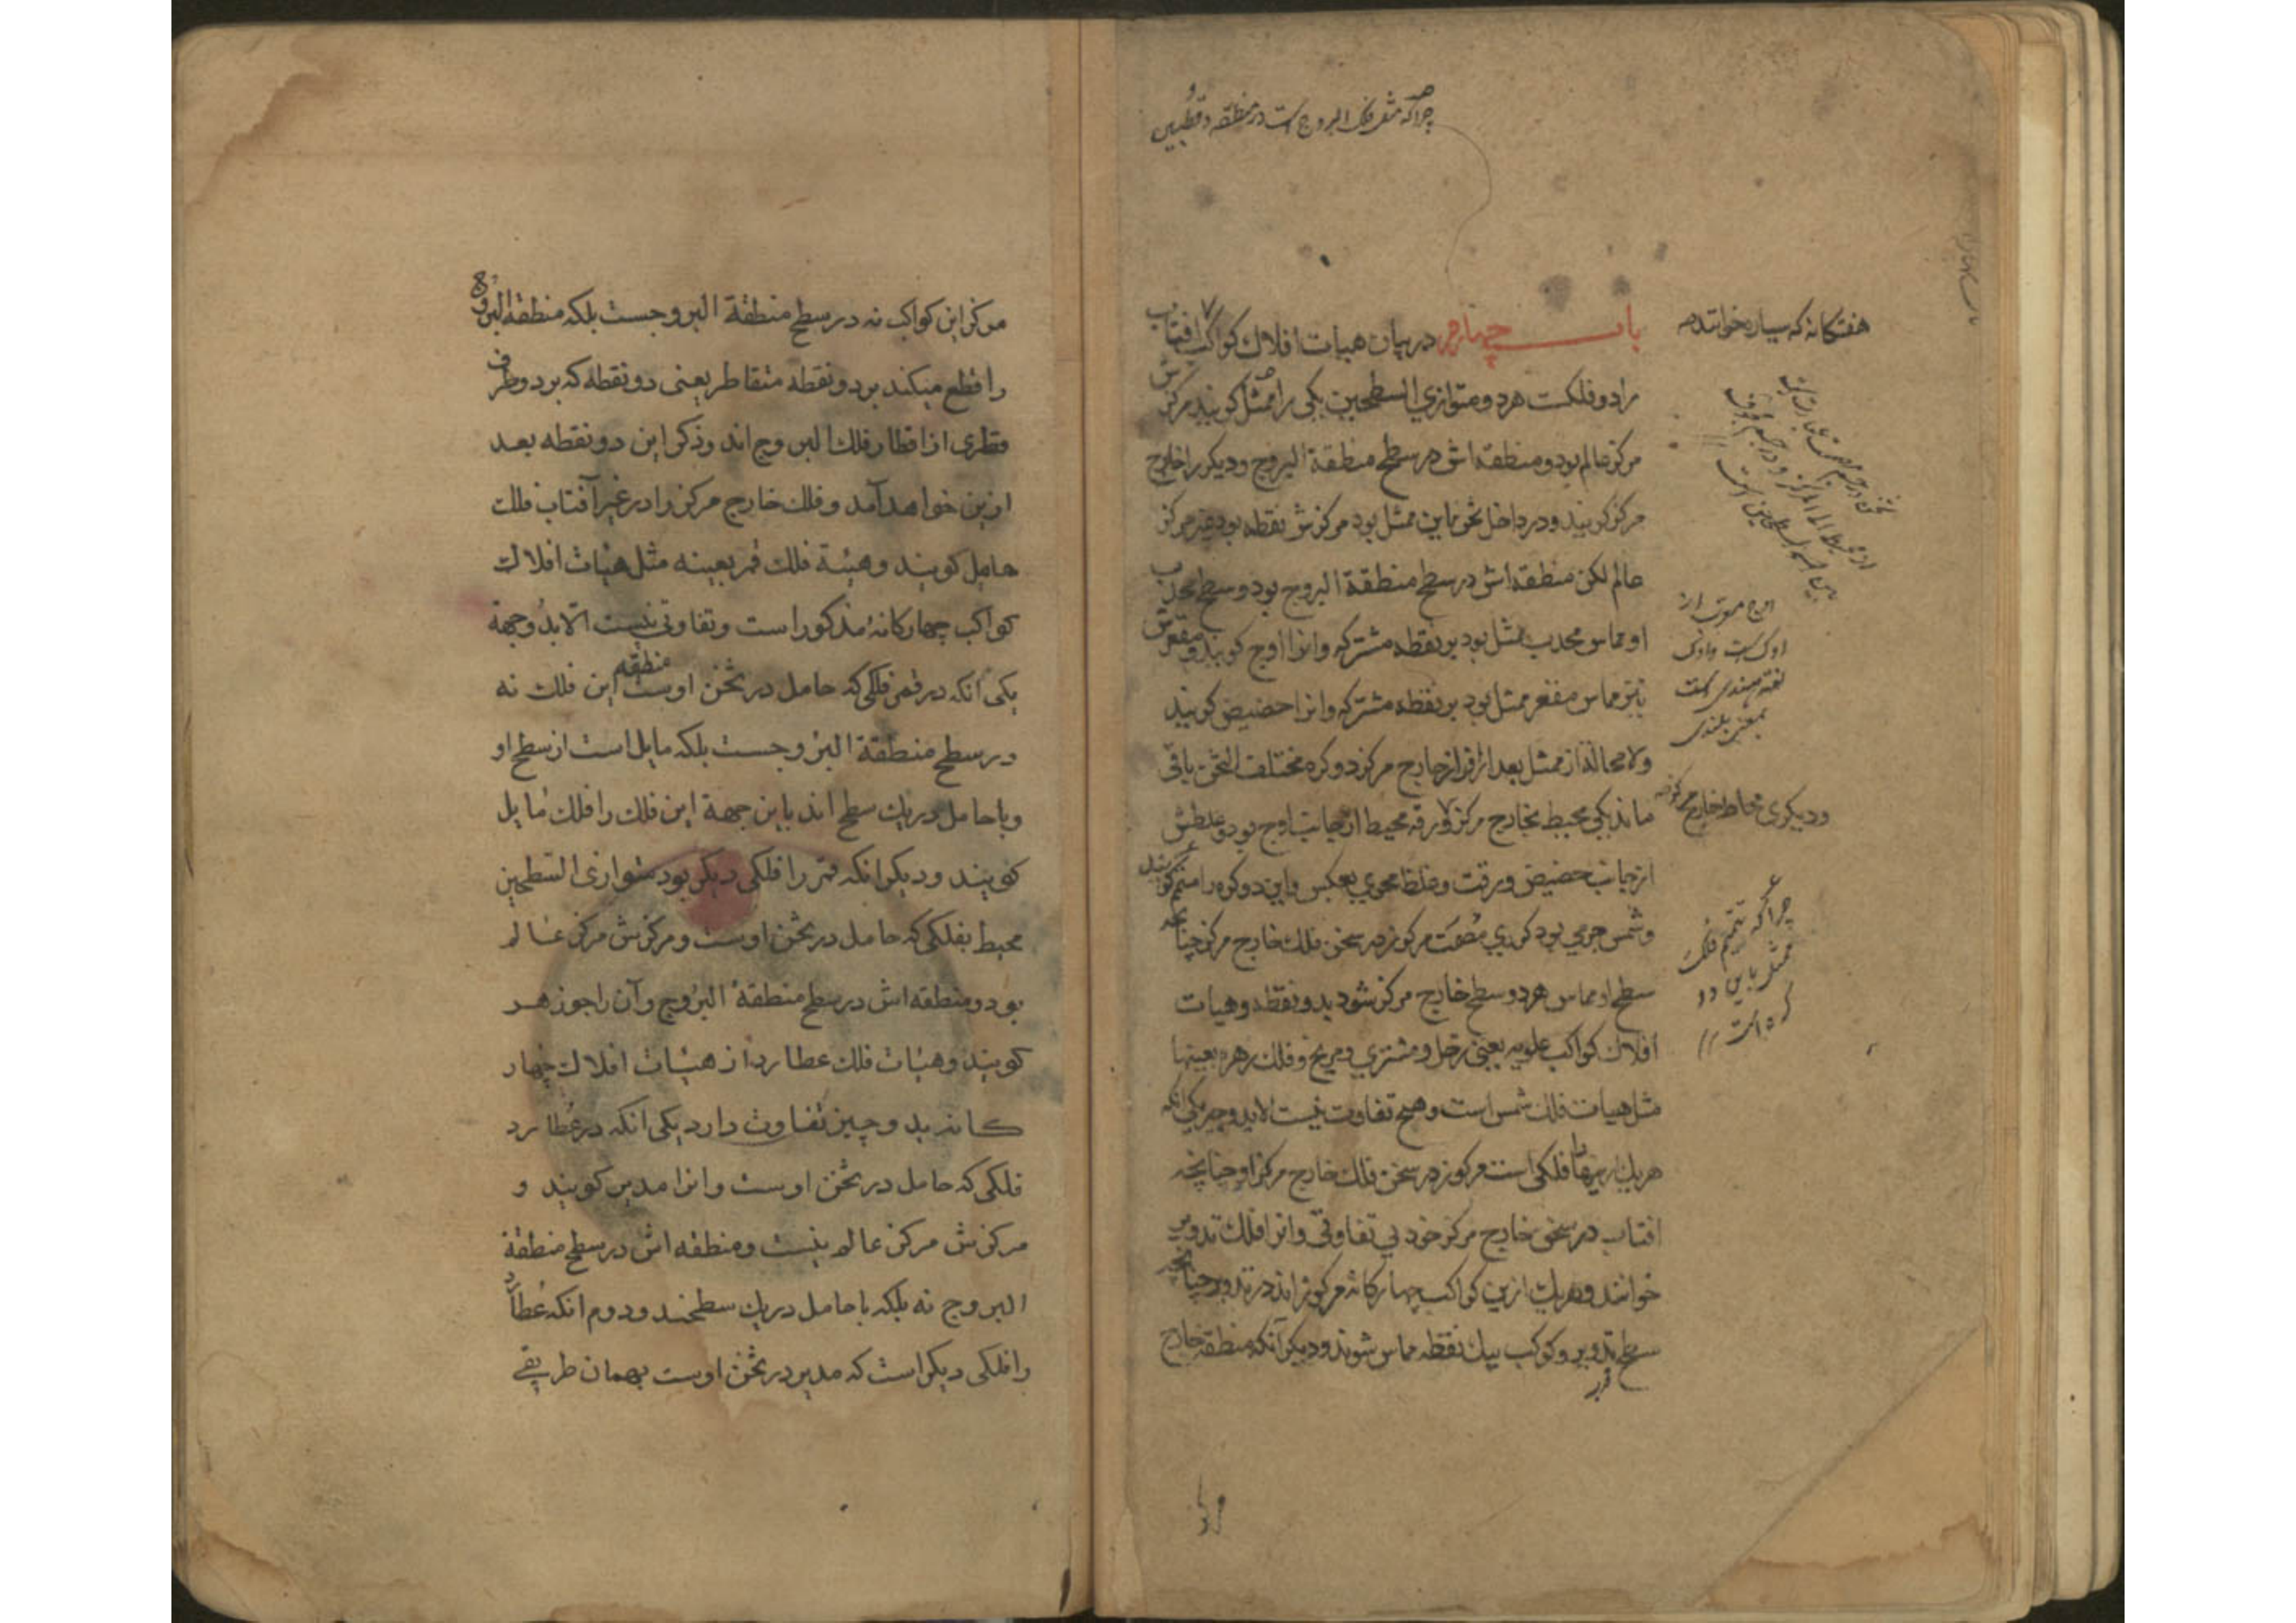 چراکه مثل فلک البروج است در منطقه و قطبین
باب چهارم در بیان هیات افلاک کواکب آفتاب
هفتگانه که سیاره خوانند
را دو فلکست هر دو متوازی السطحین یکی را ممثل کویند مرکزش
مرکز عالم بود و منطقه اش در سطح منطقة البروج و دیکر را خارج
مرکز کویند و در داخل ثخن این ممثل بود مرکزش نقطه بود غیر مرکز
عالم لکن منطقه اش در سطح منطقة البروج بود و سطح محدب
او مماس محدب ممثل بود بر نقطه مشترکه و انرا اوج کویند و مقعرش
نیز مماس مقعر ممثل بود بر نقطه مشترکه و انرا حضیض کویند
ولا محاله از ممثل بعد افراز خارج مرکز دو کره مختلف الثخن باقی
ماند یکی محیط بخارج مرکز و رقه محیط از جانب اوج بود و غلظش
و دیکری محاط خارج مرکز
از جانب حضیض و رقت و غلظ محوی بعکس و این دو کره را متمم کویند
و شمس جرمی بود کری مصمت مرکوز در سخن فلک خارج مرکز چنانچه
سطح او مماس هر دو سطح خارج مرکز شود بدو نقطه و هیات
افلاک کواکب علویه یعنی زحل و مشتری و مریخ و فلک زهره بعینها
مثل هیات فلک شمس است و هیچ تفاوت نیست الا بدو چیز یکی انکه
هر یک از اینها را فلکی است مرکوز در سخن فلک خارج مرکز او چنانچه
افتاب در سخن خارج مرکز خود بی تفاوتی و انرا فلک تدویر
خوانند و هر یک ازین کواکب چهارکانه مرکوز اند در تدویر چنانچه
سطح تدویر و کوکب بیک نقطه مماس شوند و دیکر آنکه منطقه خارج
اوج معرب از
اوک است و اوک
لغة هندی است
بمعنی بلندی
چراکه تتمیم فلک
ممثل باین دو
کره است
مرکز
مرکز این کواکب نه در سطح منطقة البروجست بلکه منطقة البروج
را قطع میکند بر دو نقطه متقاطر یعنی دو نقطه که بر دو طرف
قطری از اقطار فلک البروج اند و ذکر این دو نقطه بعد
ازین خواهد آمد و فلک خارج مرکز را در غیر آفتاب فلک
حامل کویند و هیئة فلک قمر بعینه مثل هیات افلاک
کواکب چهارکانهٔ مذکور است و تفاوتی نیست الا بدو جهة
یکی انکه در قمر فلکی که حامل در ثخن اوست منطقه این فلک نه
در سطح منطقة البروجست بلکه مایل است از سطح او
و با حامل در یک سطح اند باین جهة این فلک را فلک مایل
کویند و دیکر انکه قمر را فلکی دیکر بود متوازی السطحین
محیط بفلکی که حامل در ثخن اوست و مرکزش مرکز عالم
بود و منطقه اش در سطح منطقة البروج و آن را جوزهر
کویند و هیات فلک عطارد از هیات افلاک چهار
کانه بدو چیز تفاوت دارد یکی انکه در عطارد
فلکی که حامل در ثخن اوست و انرا مدیر کویند و
مرکزش مرکز عالم نیست و منطقه اش در سطح منطقة
البروج نه بلکه با حامل در یک سطحند و دوم انکه عطارد
را فلکی دیکر است که مدیر در ثخن اوست بهمان طریقی